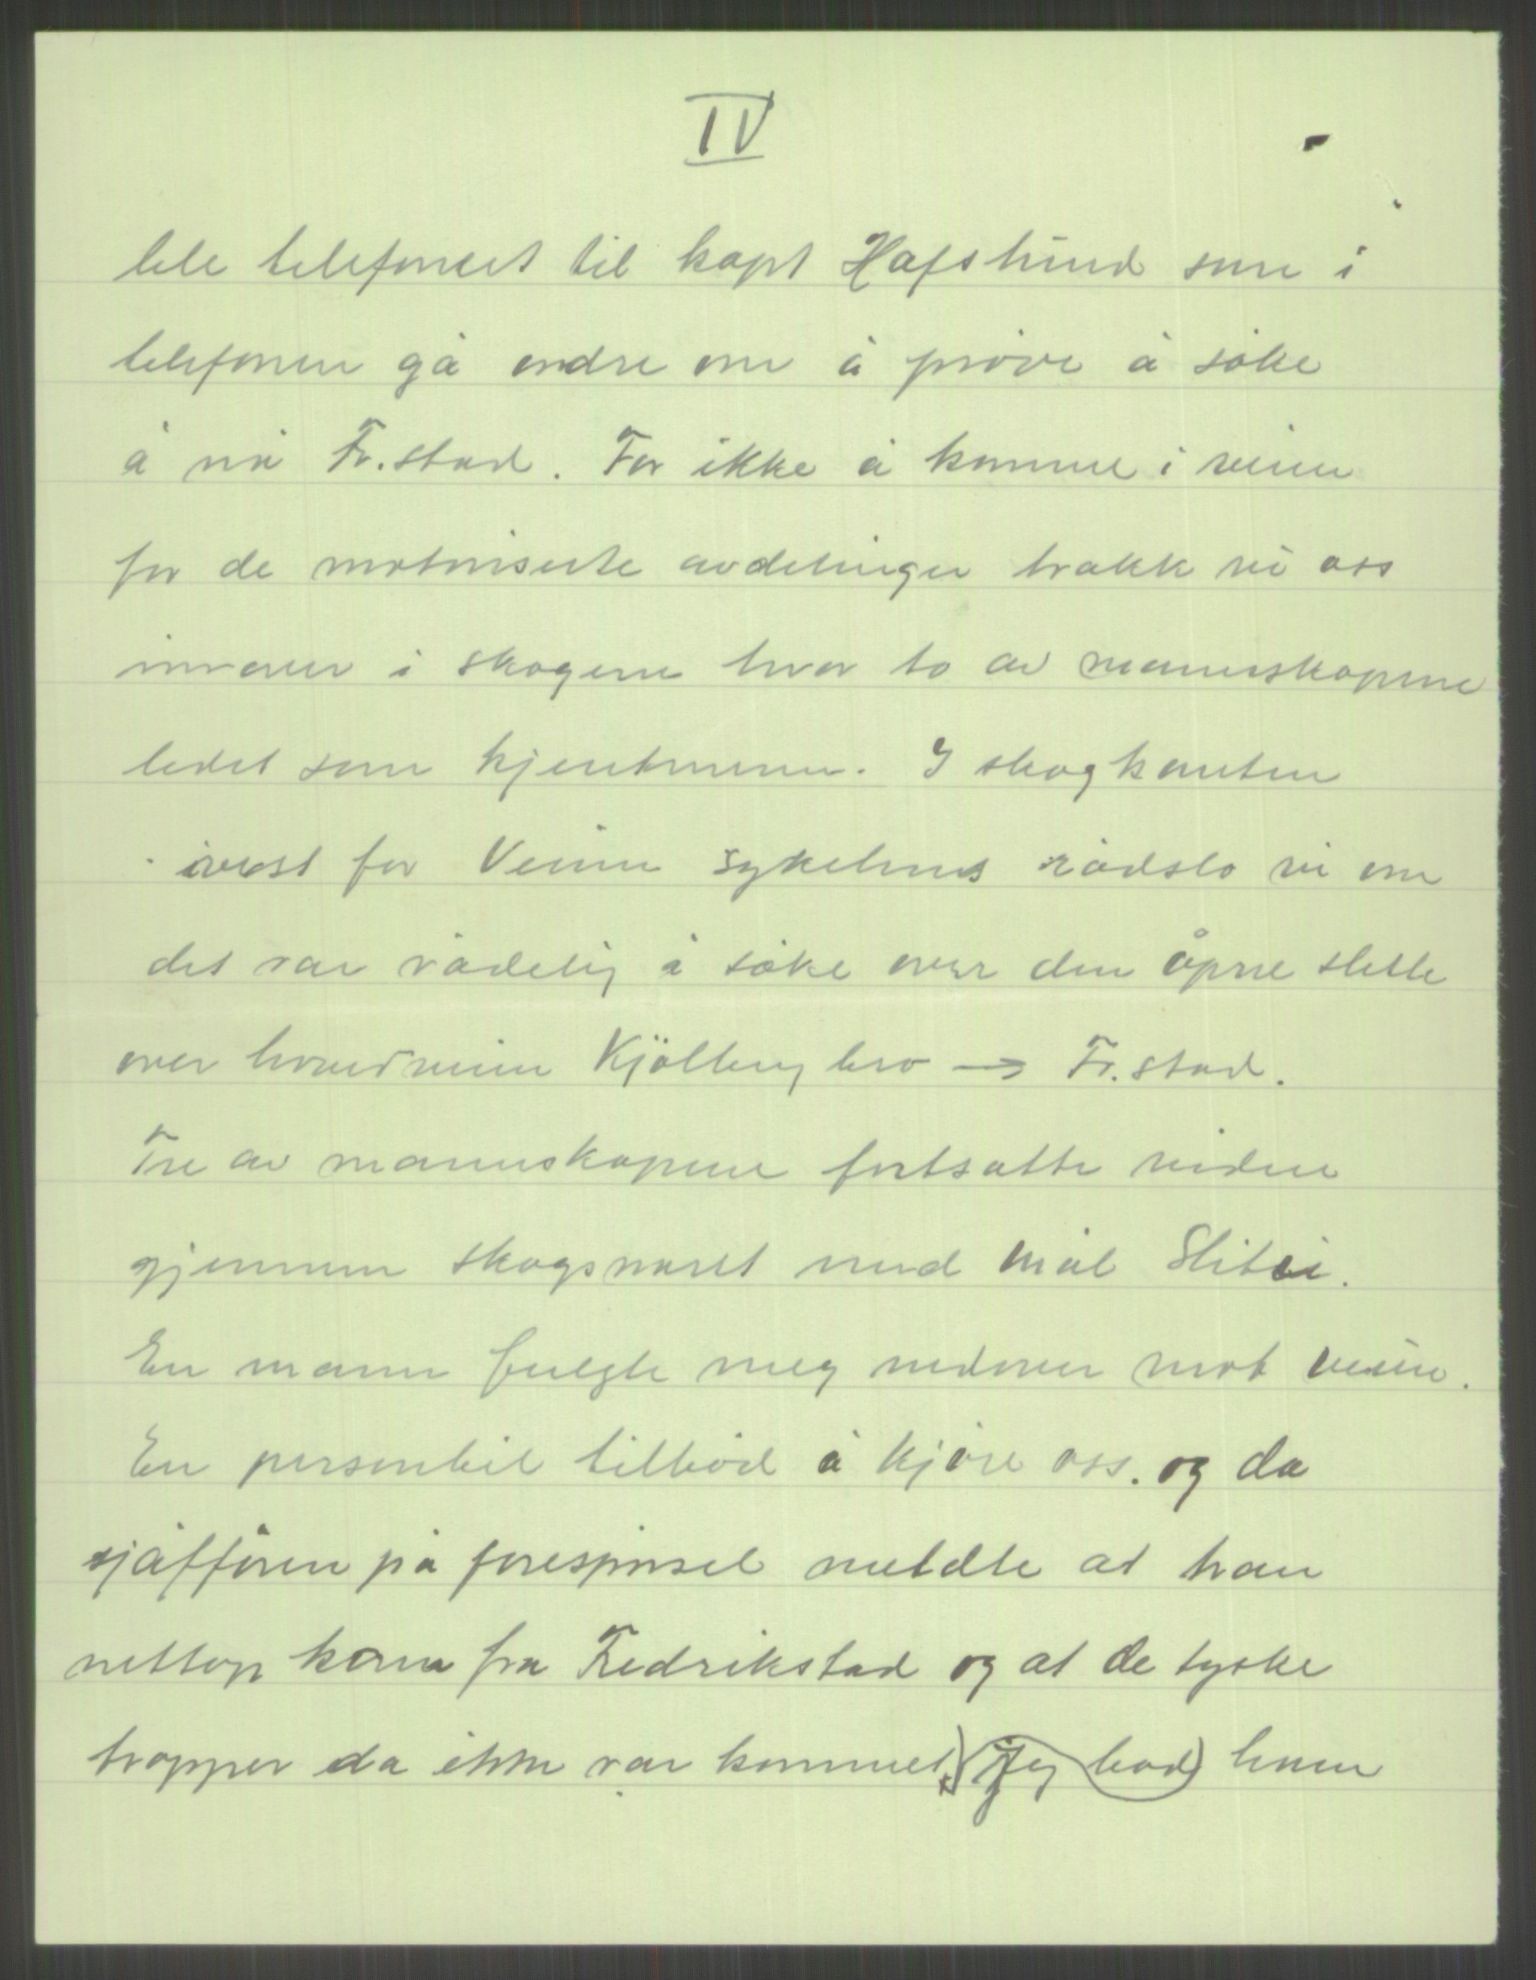 IV
ble telefonert til kapt Hafslund som i
telefonen gå ordre om å prøve å søke
å nå Fr.stad. For ikke å komme i veien
for de motoriserte avdelinger trakk vi oss
innover i skogene hvor to av mannskapene
ledet som kjentmenn. I skogkanten
øverst for Veum sykehus rådslo vi om
det var rådelig å søke over den åpne slette
over hovedveien Kjölberg bro → Fr.stad.
Tre av mannskapene fortsatte videre
gjennem skogsnaret med mål Slitu.
En mann fulgte meg nedover mot veien.
En personbil tilbød å kjøre oss. og da
sjåfføren på forespørsel meldte at han
nettop kom fra Fredrikstad og at de tyske
tropper da ikke var kommet, jeg bad ham